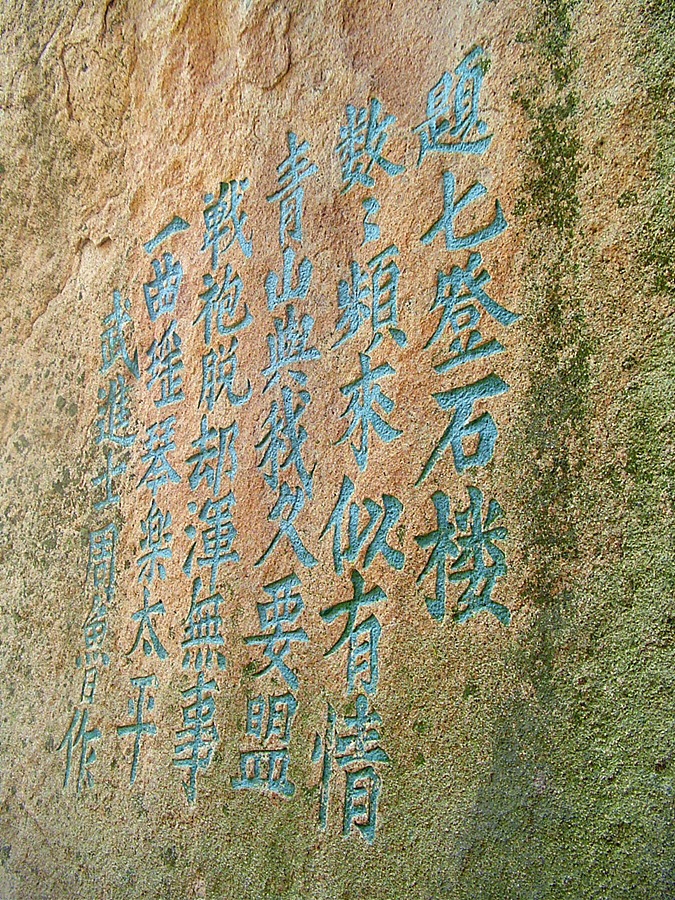 題七登石樓
數〻頻來似有情
青山與我久要盟
戰袍脫却渾無事
一曲琴樂太平
武進士周魯作